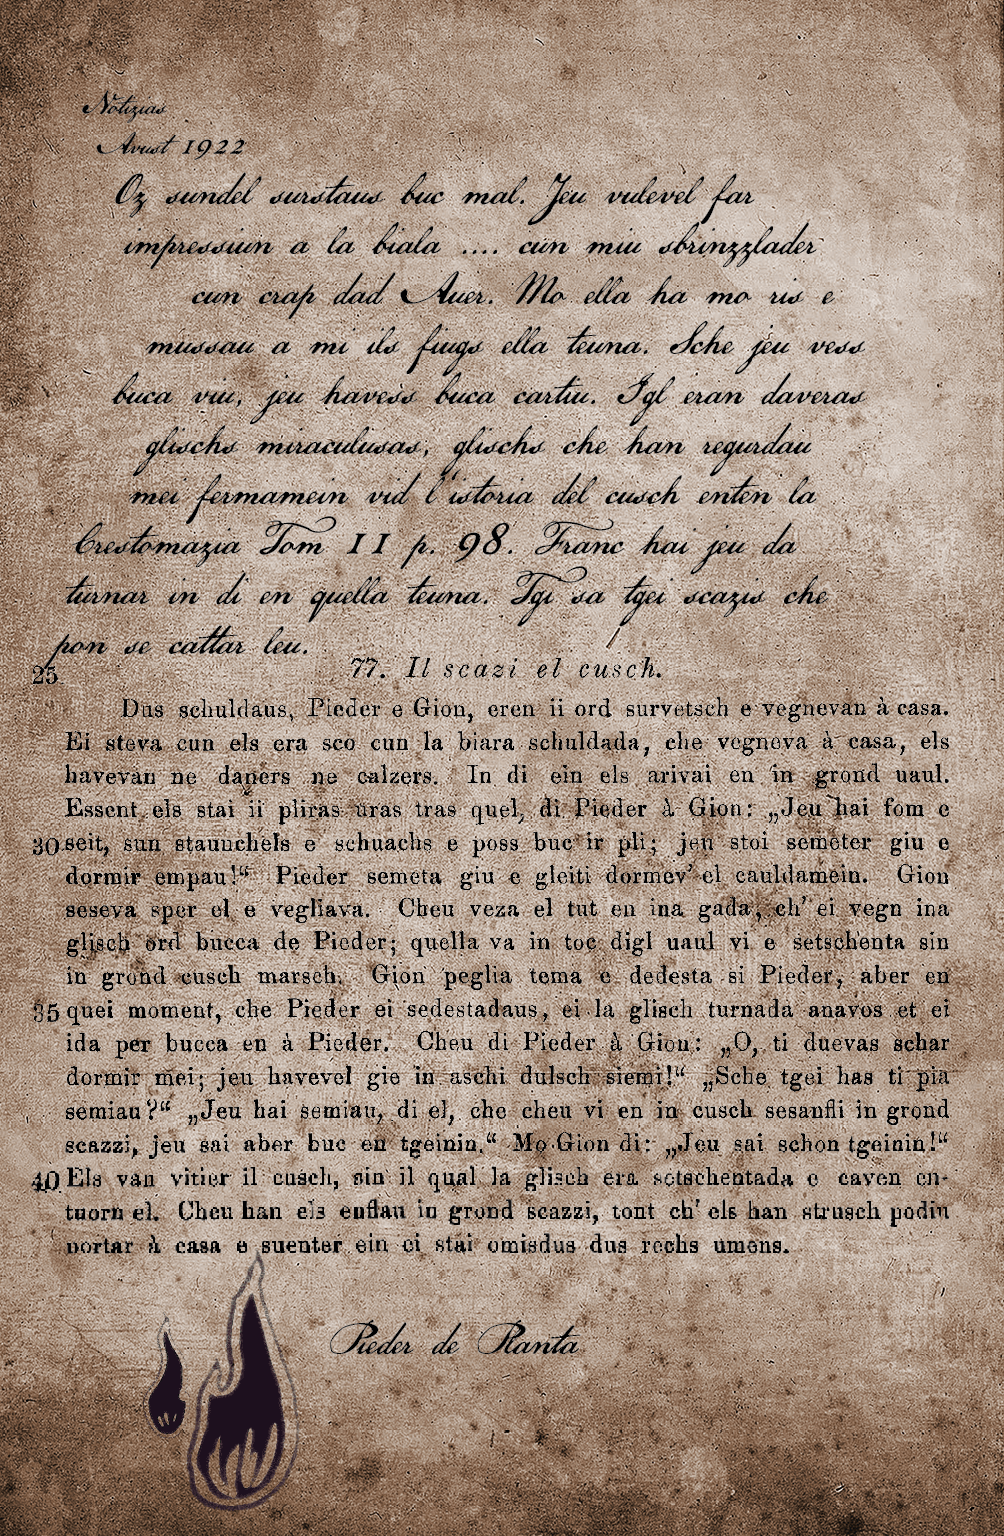 Notizias
Avust 1922
Oz sundel surstaus buc mal. Jeu vulevel far
impressiun a la biala .... cun miu sbrinzzlader
cun crap dad Auer. Mo ella ha mo ris e
mussau a mi ils fiugs ella teuna. Sche jeu vess
buca viu, jeu havess buca cartiu. Igl eran daveras
glischs miraculusas, glischs che han regurdau
mei fermamein vid l'istoria del cusch enten la
Crestomazia Tom II p. 98. Franc hai jeu da
turnar in di en quella teuna. Tgi sa tgei scazis che
pon se cattar leu.
25
77. Il scazi el cusch.
Dus schuldaus, Pieder e Gion, eren ii ord survetsch e vegnevan à casa.
Ei steva cun els era sco cun la biara schuldada, che vegneva à casa, els
havevan ne daners ne calzers. In di ein els arivai en in grond uaul.
Essent els stai ii pliras uras tras quel, di Pieder à Gion: „Jeu hai fom e
30 seit, sun staunchels e schuachs e poss buc ir pli; jeu stoi semeter giu e
dormir empau!“ Pieder semeta giu e gleiti dormev' el cauldamein. Gion
seseva sper el e vegliava. Cheu veza el tut en ina gada, ch' ei vegn ina
glisch ord bucca de Pieder; quella va in toc digl uaul vi e setschenta sin
in grond cusch marsch. Gion peglia tema e dedesta si Pieder, aber en
35 quei moment, che Pieder ei sedestadaus, ei la glisch turnada anavos et ei
ida per bucca en à Pieder. Cheu di Pieder à Gion: „O, ti duevas schar
dormir mei; jeu havevel gie in aschi dulsch siemi!“ „Sche tgei has ti pia
semiau?“ „Jeu hai semiau, di el, che cheu vi en in cusch sesanfli in grond
scazzi, jeu sai aber buc en tgeinin.“ Mo Gion di: „Jeu sai schon tgeinin!“
40 Els van vitier il cusch, sin il qual la glisch era setschentada e caven en-
tuorn el. Cheu han els enflau in grond scazzi, tont ch' els han strusch podiu
portar à casa e suenter ein ei stai omisdus dus rechs umens.
Pieder de Ranta